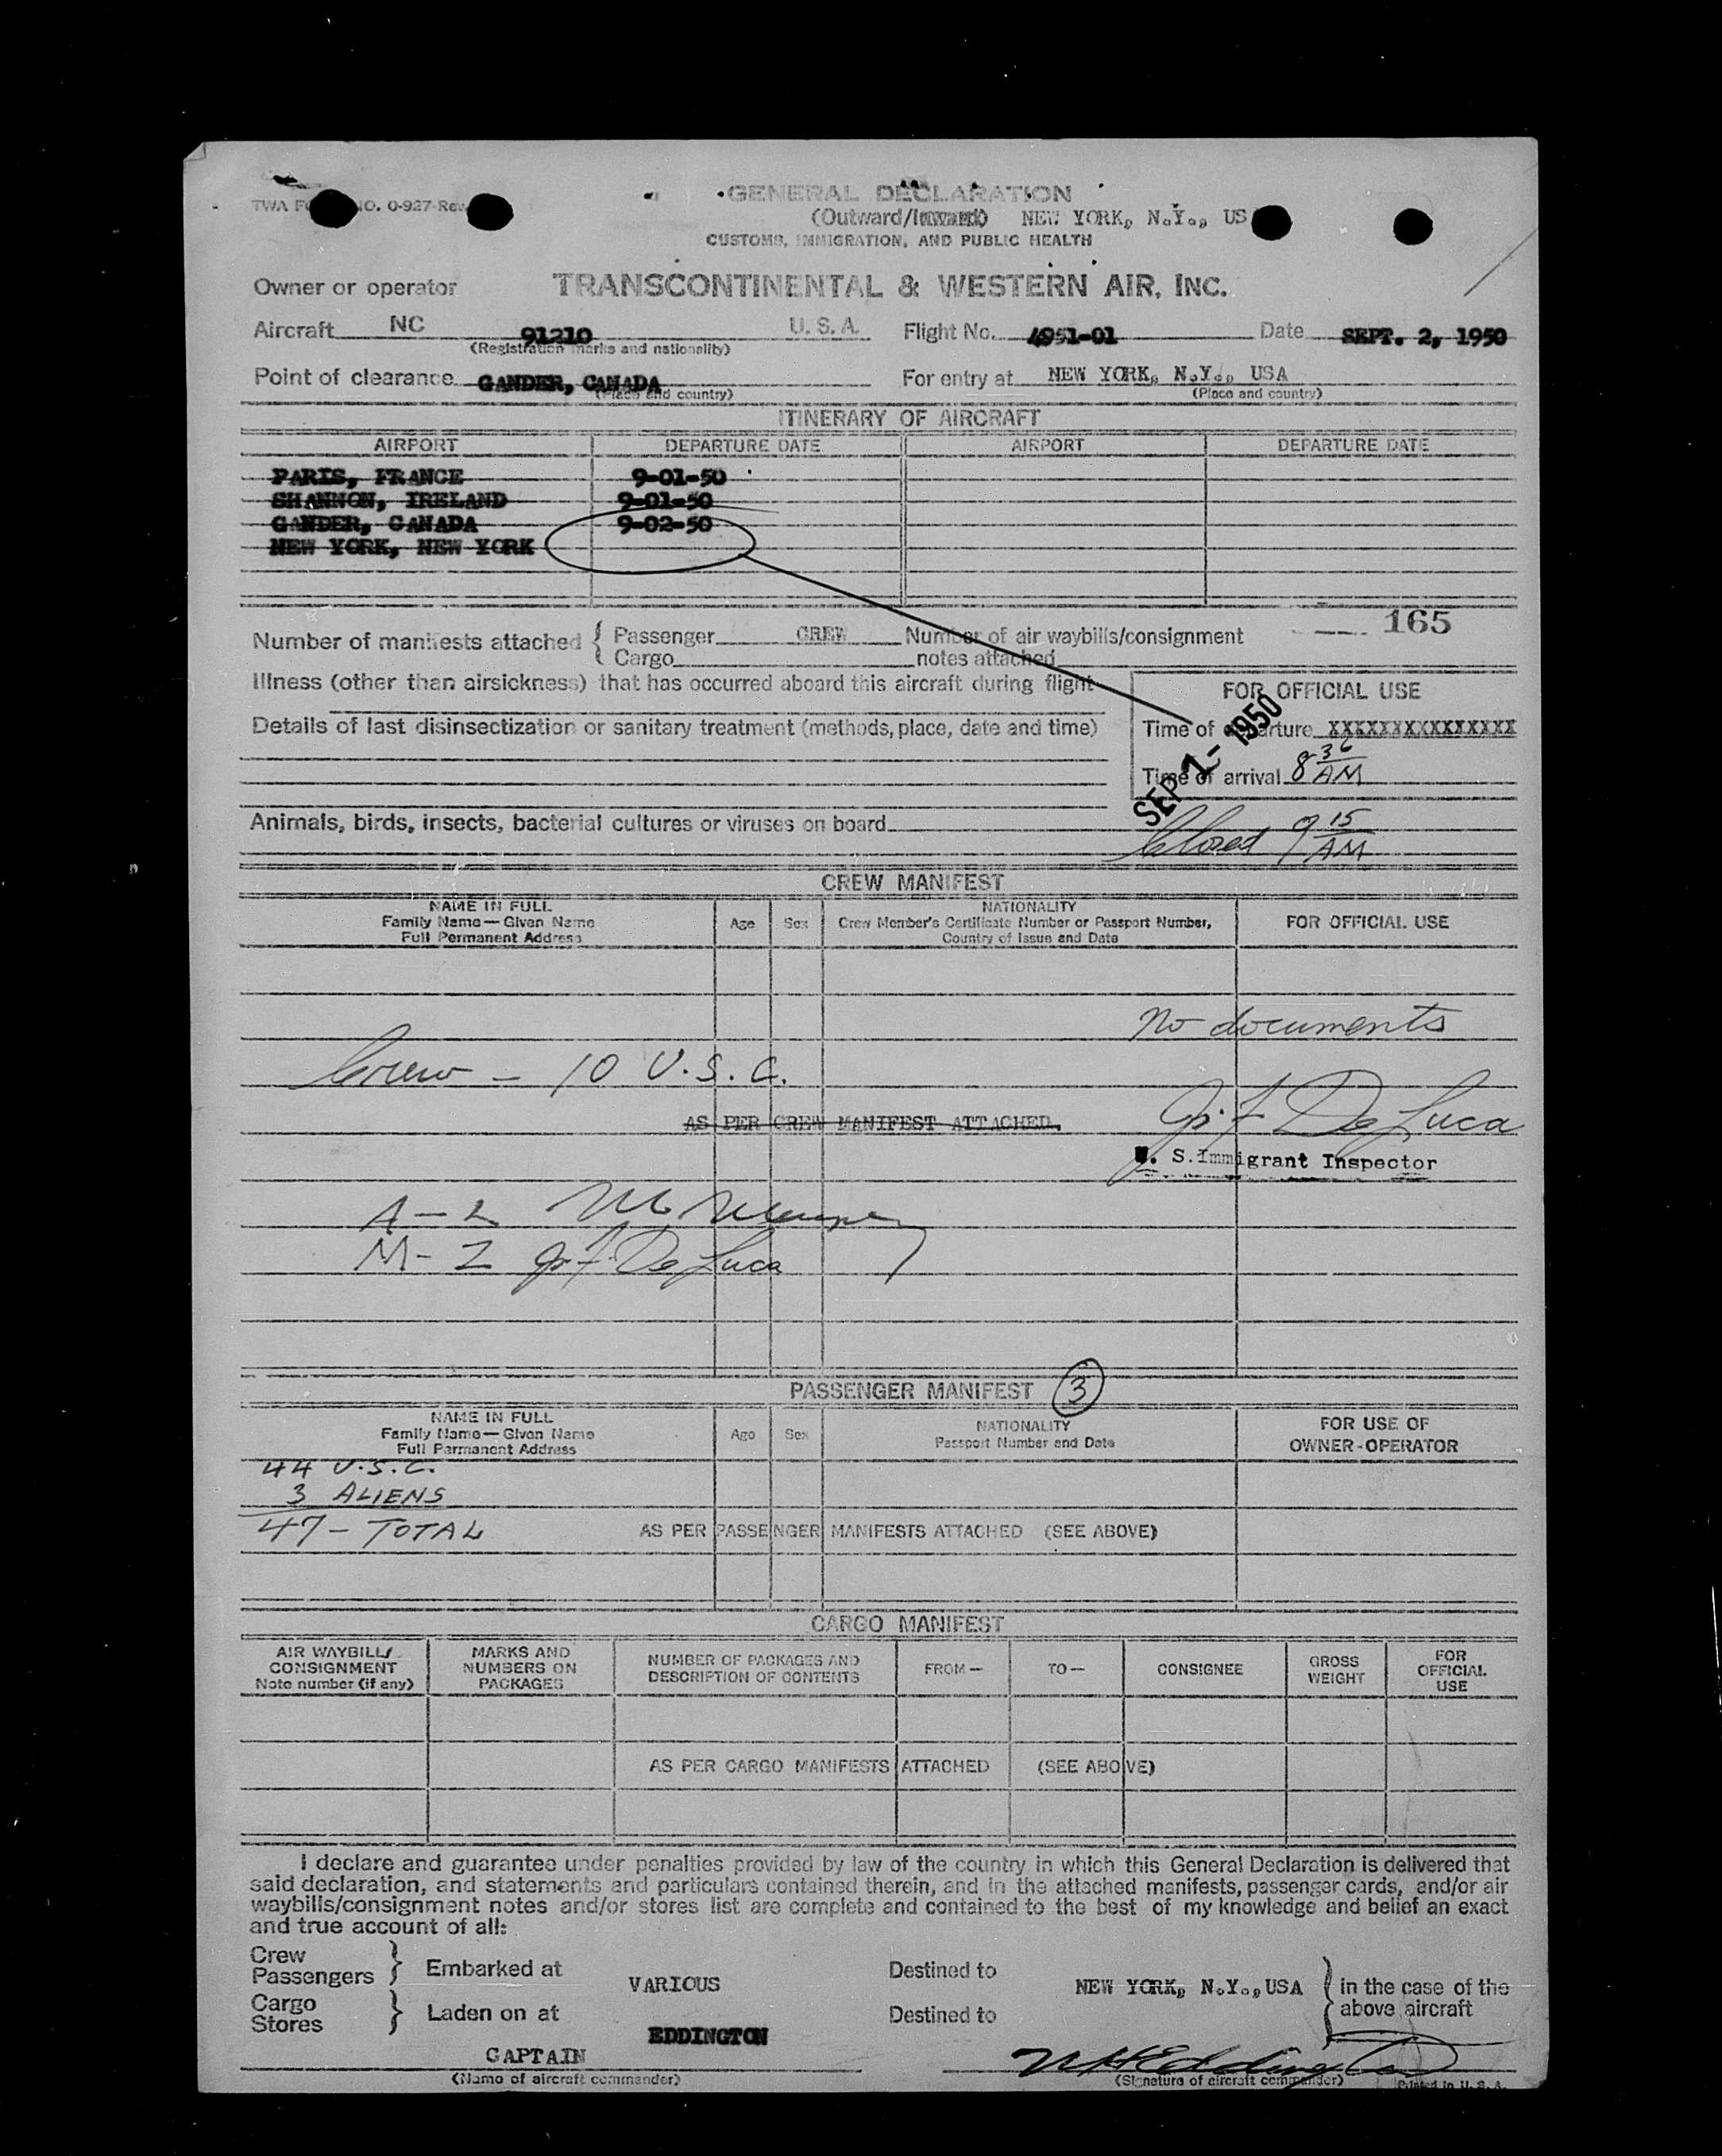 GENERAL DECLARATION
(Outward/Inward) NEW YORK, N.Y., US
CUSTOMS, IMMIGRATION, AND PUBLIC HEALTH
Owner or operator TRANSCONTINENTAL & WESTERN AIR, INC.
Aircraft NC 91210 U.S.A. Flight No. 4951-01 Date SEPT. 2, 1950
(Registration marks and nationality)
Point of clearance GANDER, CANADA For entry at NEW YORK, N.Y., USA
(Place and country) (Place and country)
ITINERARY OF AIRCRAFT
AIRPORT DEPARTURE DATE AIRPORT DEPARTURE DATE
PARIS, FRANCE 9-01-50
SHANNON, IRELAND 9-01-50
GANDER, CANADA 9-02-50
NEW YORK, NEW YORK
165
Number of manifests attached { Passenger CREW Number of air waybills/consignment
Cargo notes attached
Illness (other than airsickness) that has occurred aboard this aircraft during flight
FOR OFFICIAL USE
Details of last disinsectization or sanitary treatment (methods, place, date and time)
Time of departure XXXXXXXXXXXXXXXX
Time of arrival 8 36 AM
1950
Animals, birds, insects, bacterial cultures or viruses on board
Closed 9 15 AM
CREW MANIFEST
NAME IN FULL
Family Name—Given Name
Full Permanent Address
Age Sex
NATIONALITY
Crew Member's Certificate Number or Passport Number,
Country of Issue and Date
FOR OFFICIAL USE
No documents
Crew - 10 U.S.C.
AS PER CREW MANIFEST ATTACHED.
J. F. De Luca
U. S. Immigrant Inspector
A - 2
M - 2 J. F. De Luca
PASSENGER MANIFEST 3
NAME IN FULL
Family Name—Given Name
Full Parmanent Address
Age Sex
NATIONALITY
Passport Number and Date
FOR USE OF
OWNER-OPERATOR
44 U.S.C.
3 ALIENS
47 - TOTAL AS PER PASSENGER MANIFESTS ATTACHED (SEE ABOVE)
CARGO MANIFEST
AIR WAYBILL/
CONSIGNMENT
Note number (if any)
MARKS AND
NUMBERS ON
PACKAGES
NUMBER OF PACKAGES AND
DESCRIPTION OF CONTENTS
FROM— TO— CONSIGNEE
GROSS
WEIGHT
FOR
OFFICIAL
USE
AS PER CARGO MANIFESTS ATTACHED (SEE ABOVE)
I declare and guarantee under penalties provided by law of the country in which this General Declaration is delivered that
said declaration, and statements and particulars contained therein, and in the attached manifests, passenger cards, and/or air
waybills/consignment notes and/or stores list are complete and contained to the best of my knowledge and belief an exact
and true account of all:
Crew
Passengers } Embarked at VARIOUS Destined to NEW YORK, N.Y., USA } in the case of the
above aircraft
Cargo
Stores } Laden on at Destined to
EDDINGTON
CAPTAIN
(Name of aircraft commander) (Signature of aircraft commander)
Printed in U. S. A.